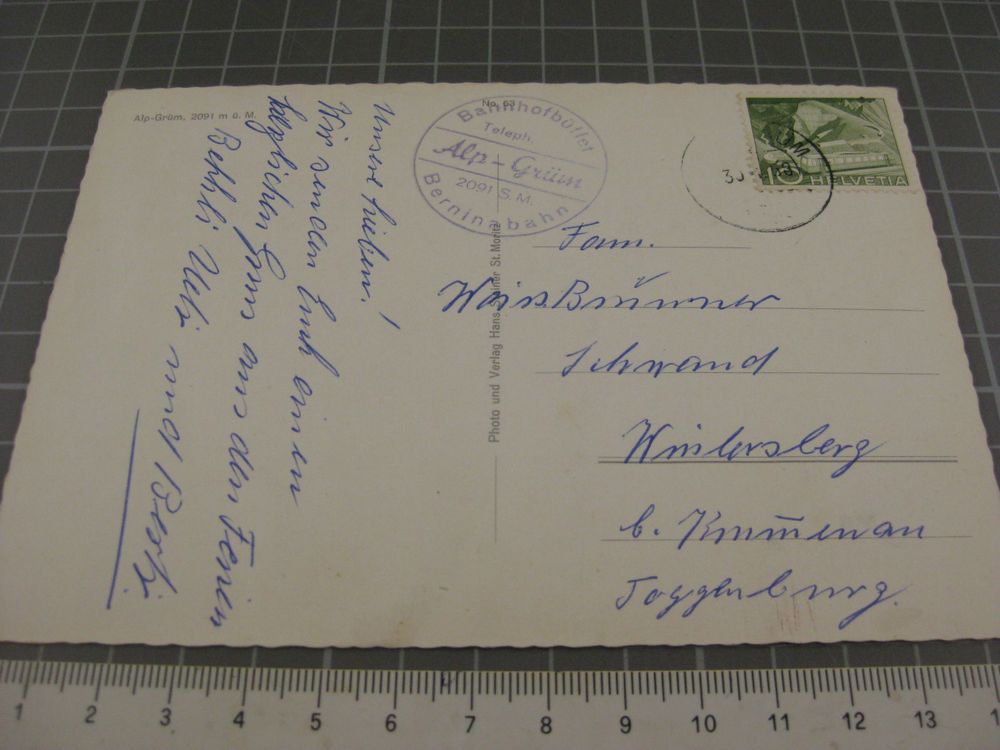 Alp-Grüm, 2091 m ü. M.
Unsere Lieben!
Wir senden Euch einen
herzlichen Gruss aus den Ferien
Bethli Ueli und Berti
No. 63
Bahnhofbüffet
Teleph.
Alp-Grüm
2091 S.M.
Berninabahn
Photo und Verlag Hans Steiner St. Moritz
10 HELVETIA
Fam.
Weiss Brunner
Schwand
Wintersberg
b. Krummenau
Toggenburg.
1 2 3 4 5 6 7 8 9 10 11 12 13 14